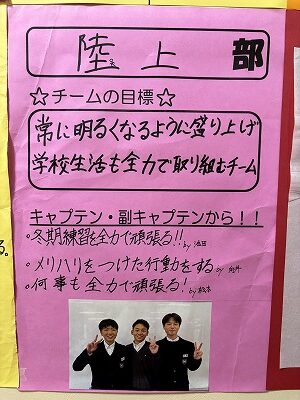 陸上 部
☆チームの目標☆
常に明るくなるように盛り上げ
学校生活も全力で取り組むチーム
キャプテン・副キャプテンから！！
・冬期練習を全力で頑張る!! by
・メリハリをつけた行動をする by
・何事も全力で頑張る! by 松本
る。